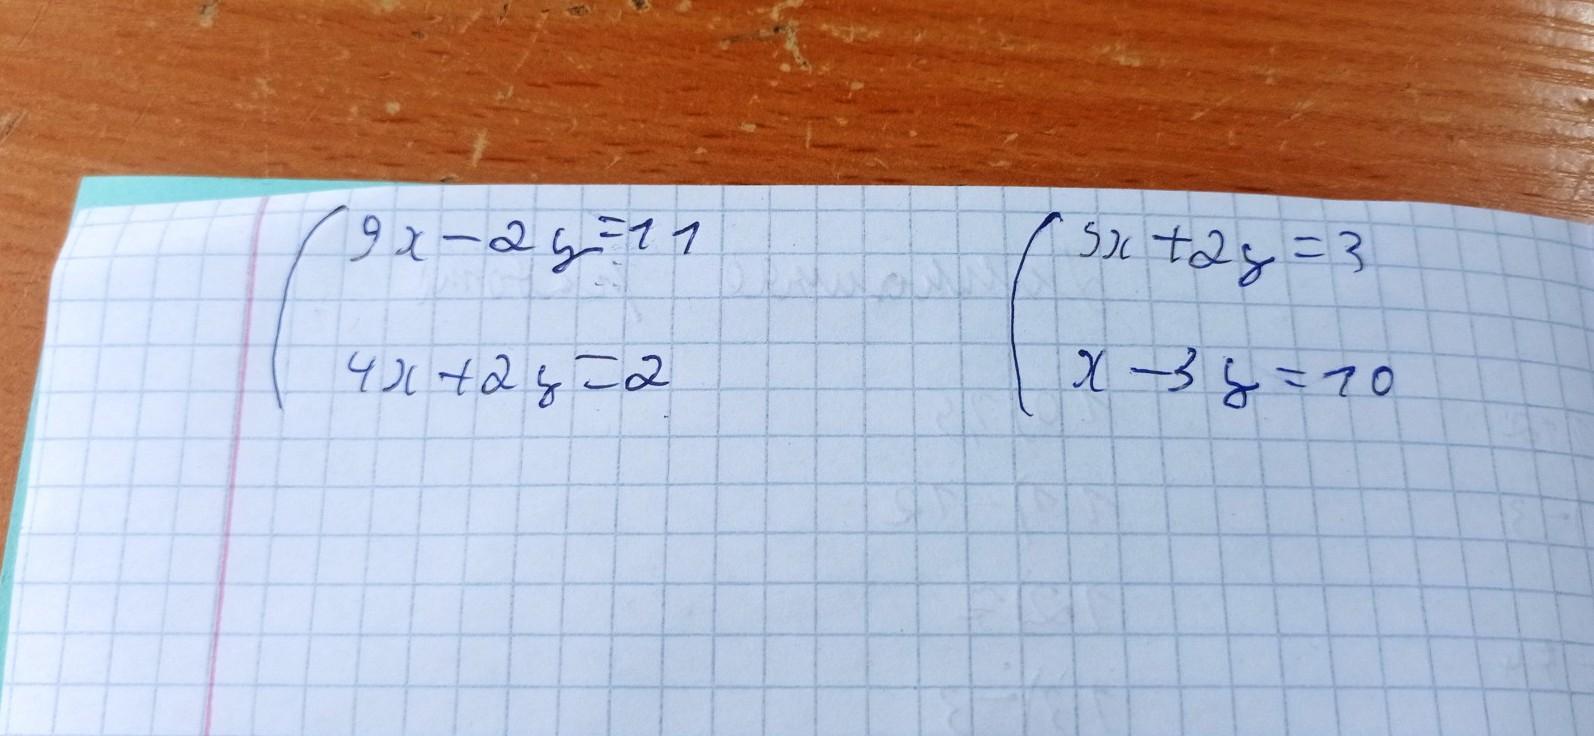 9x-2y=11
4x+2y=2
5x+2y=3
x-3y=10